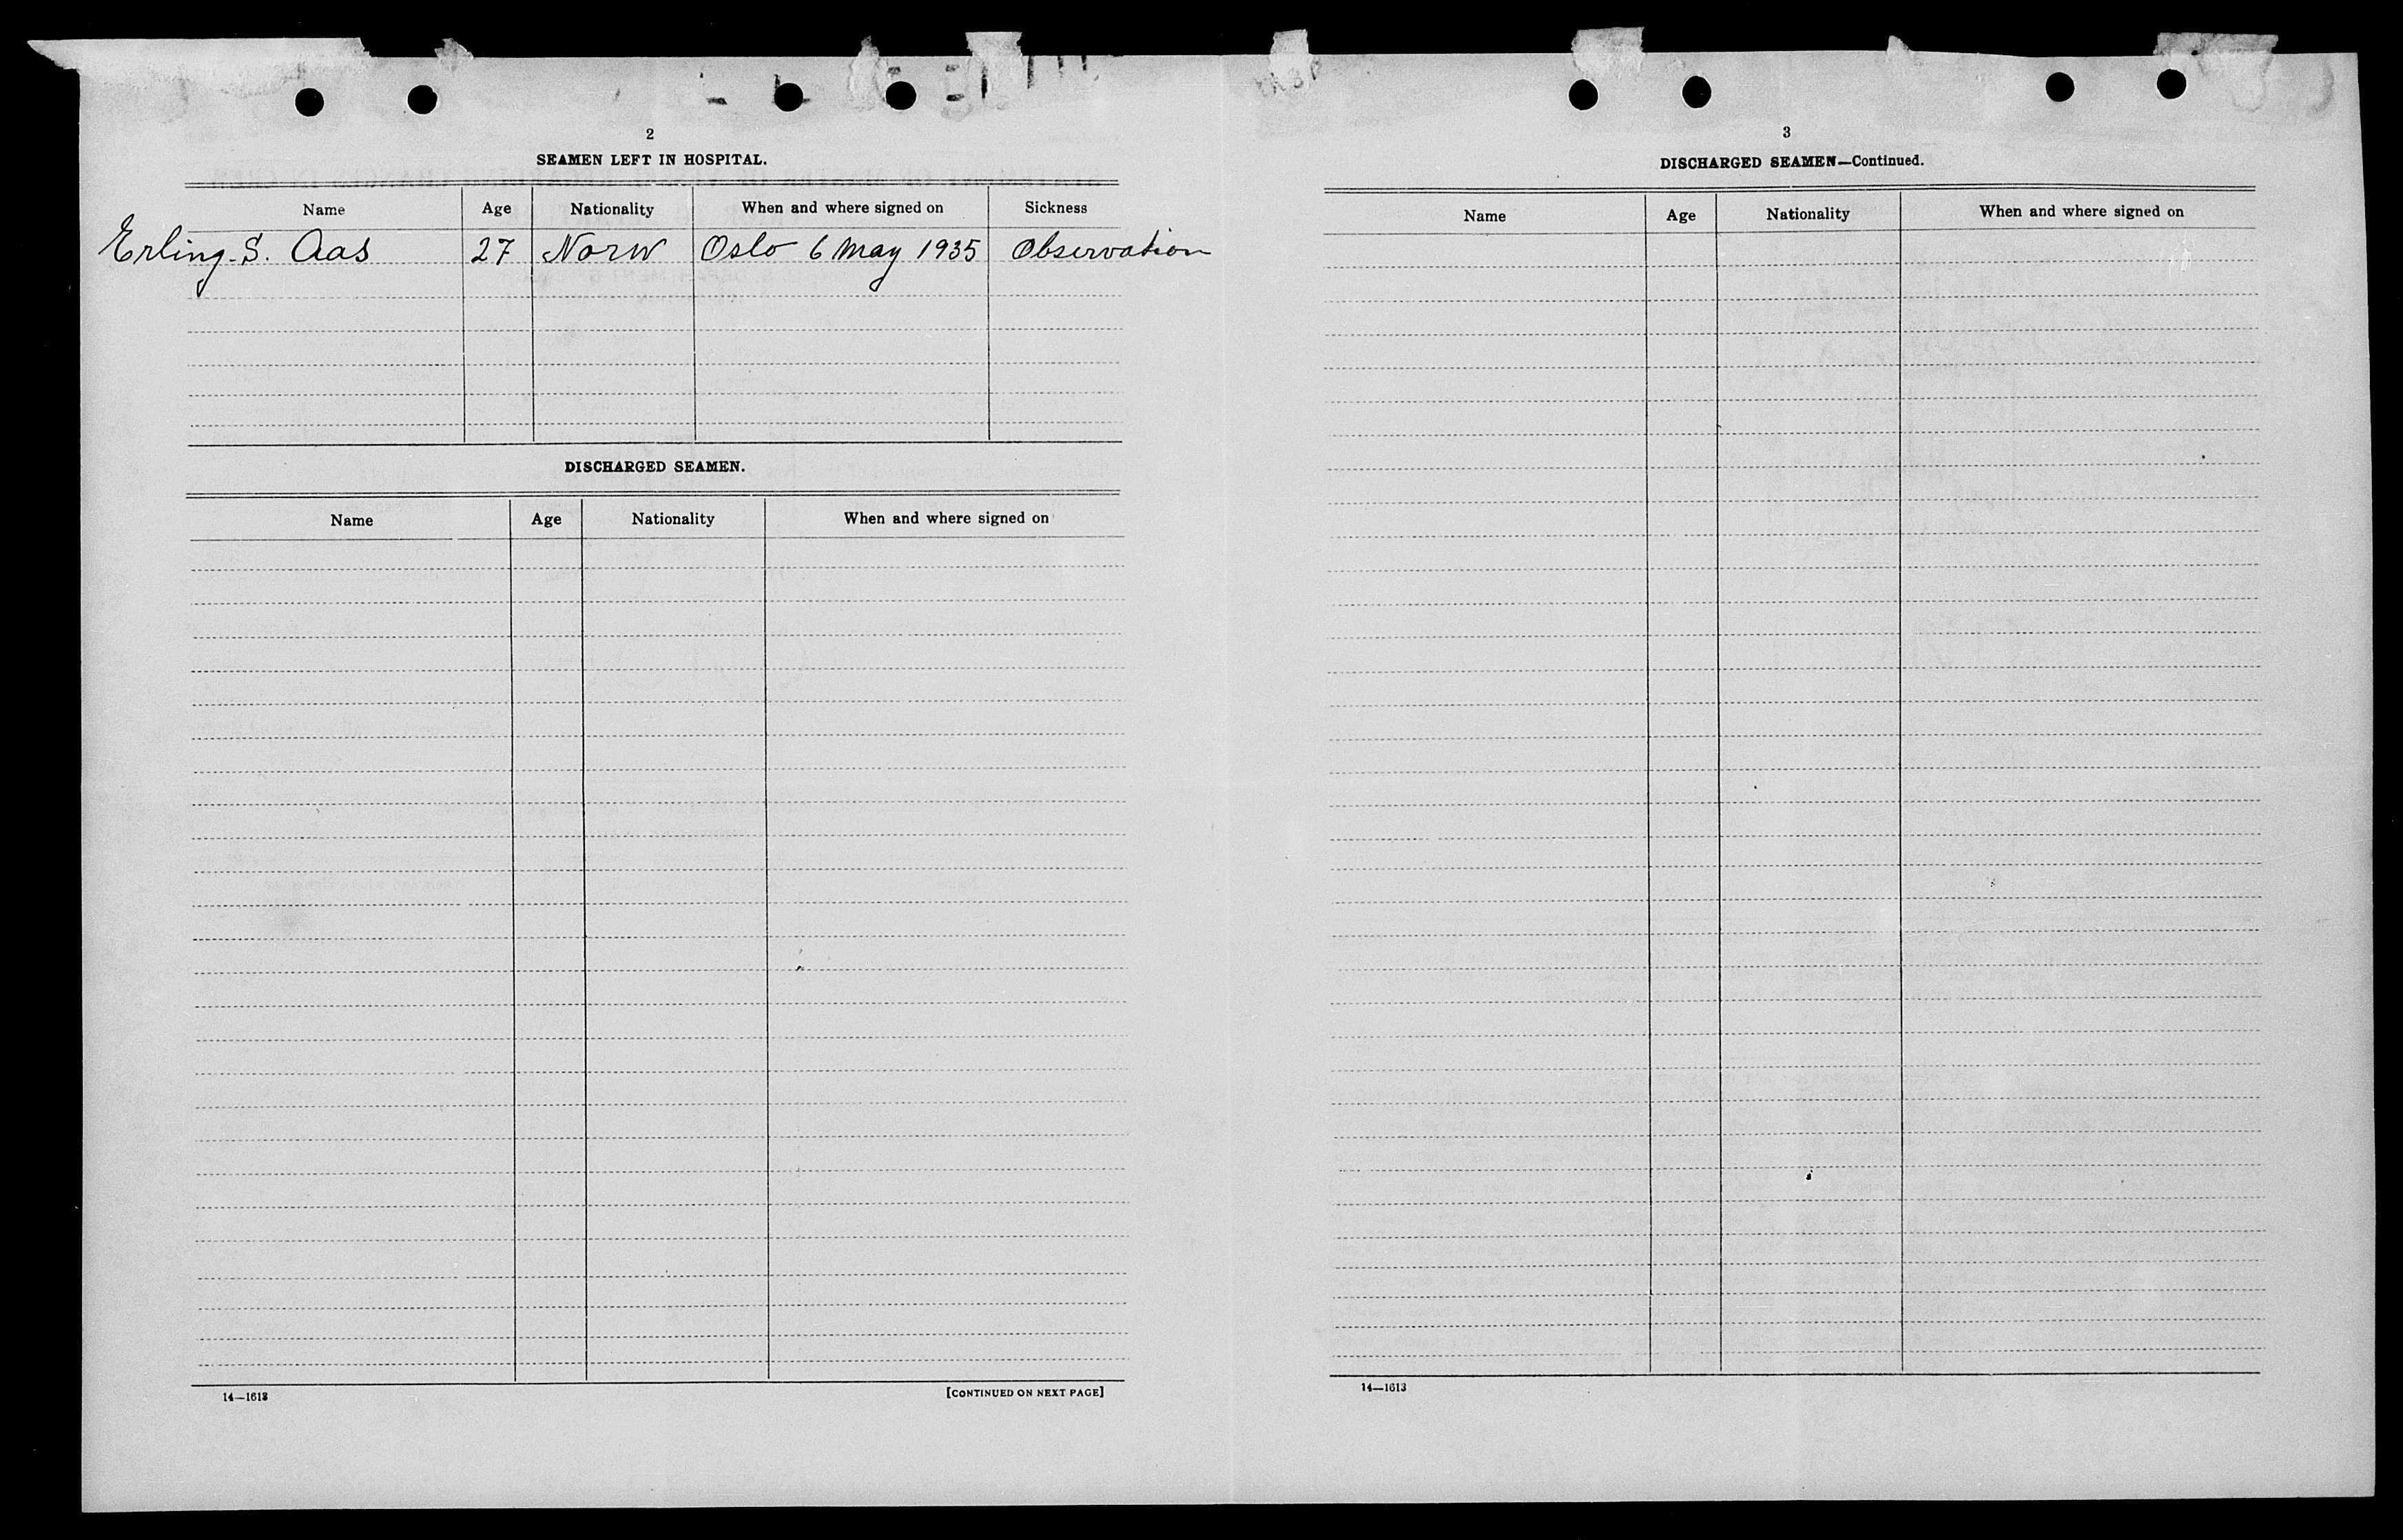 2
SEAMEN LEFT IN HOSPITAL.
Name Age Nationality When and where signed on Sickness
Erling. S. Aas 27 Norw Oslo 6 May 1935 Observation
DISCHARGED SEAMEN.
Name Age Nationality When and where signed on
14—1613 [CONTINUED ON NEXT PAGE]
3
DISCHARGED SEAMEN—Continued.
Name Age Nationality When and where signed on
14—1613